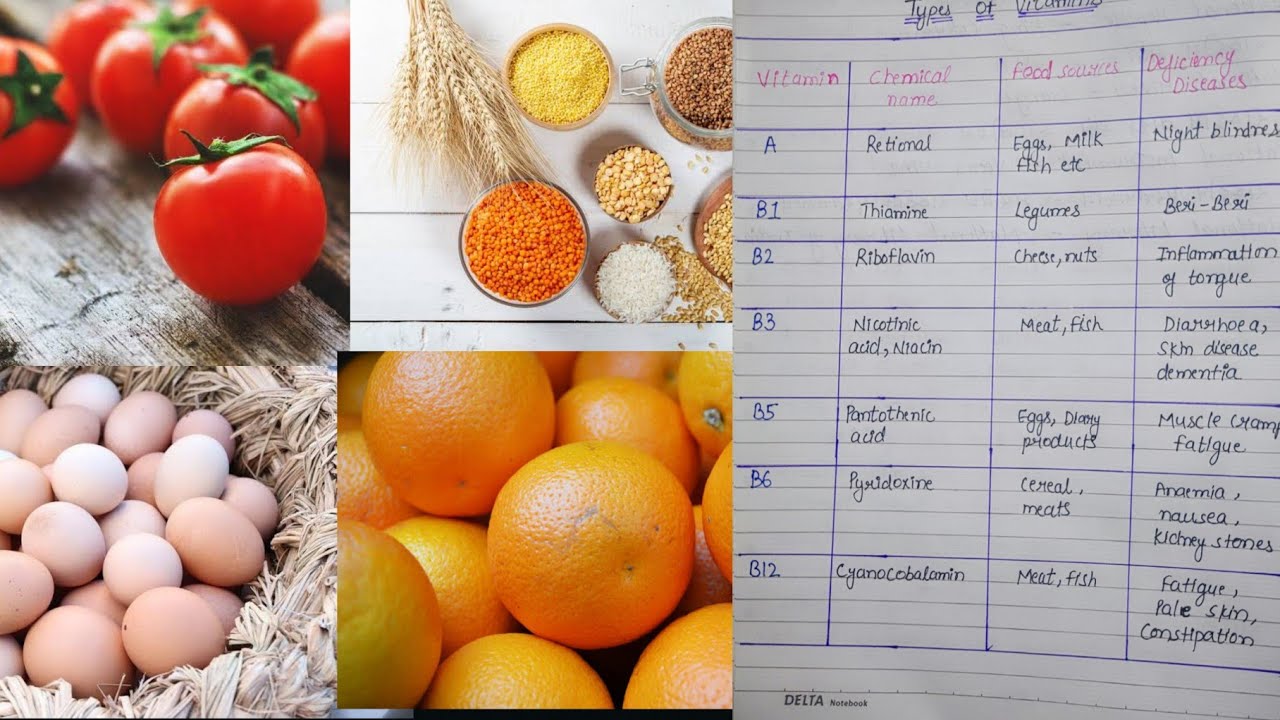 Types Of Vitamins
Vitamin Chemical name Food sources Deficiency Diseases
A Retional Eggs, Milk fish etc Night blindnes
B1 Thiamine Legumes Beri-Beri
B2 Riboflavin Cheese, nuts Inflammation of tongue
B3 Nicotinic acid, Niacin Meat, fish Diarrhoea, Skin disease dementia
B5 Pantothenic acid Eggs, Diary products Muscle cramp fatigue
B6 Pyridoxine Cereal, meats Anaemia, nausea, kidney stones
B12 Cyanocobalamin Meat, fish Fatigue, Pale skin, Constipation
DELTA Notebook